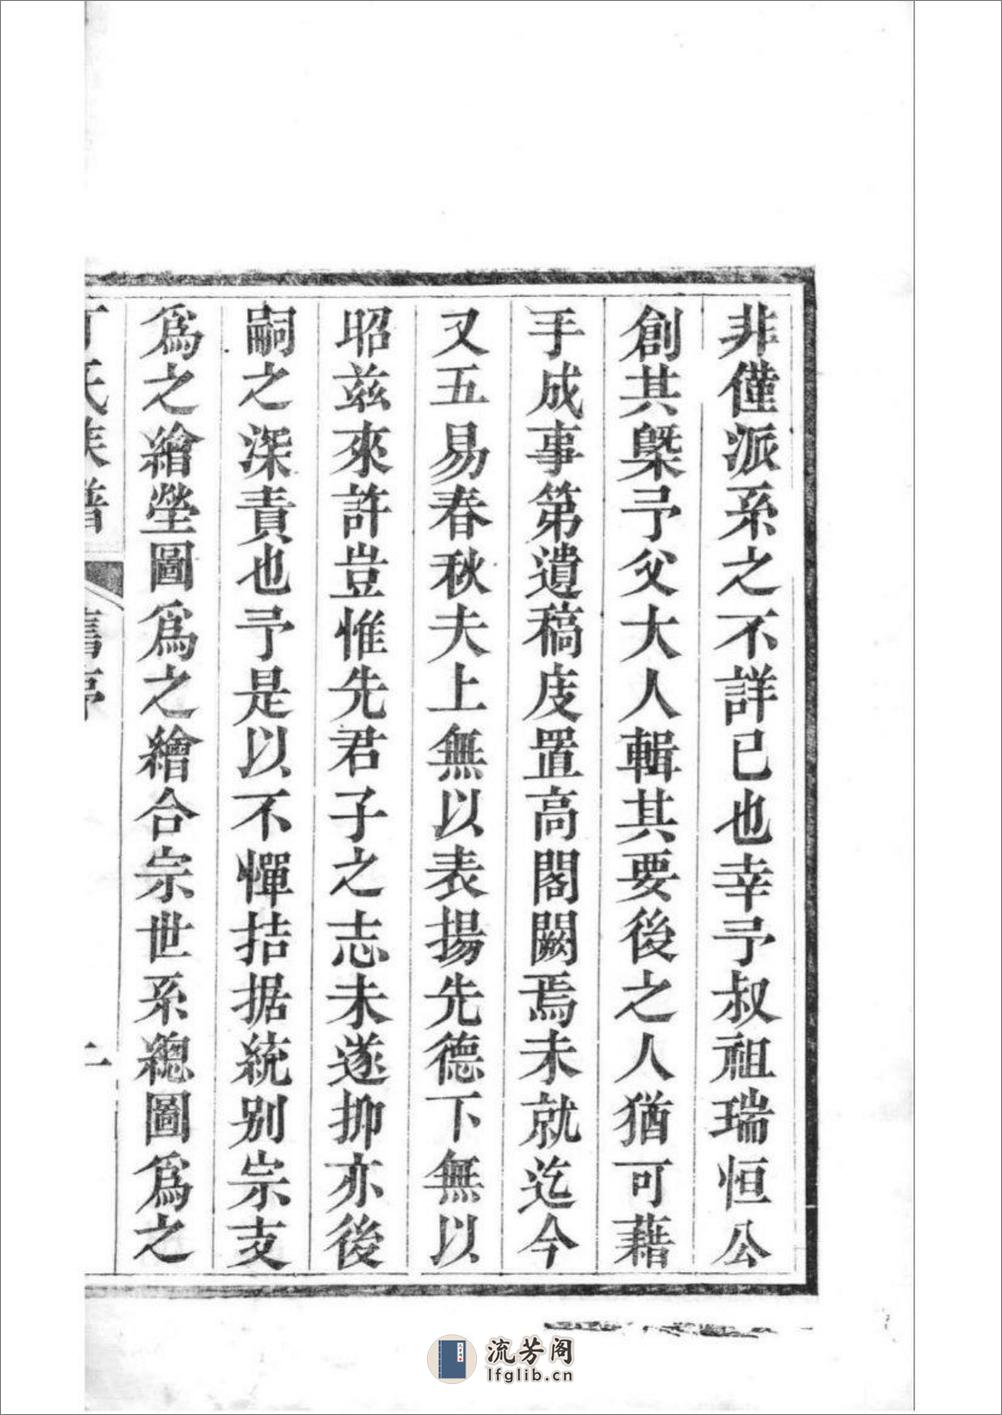 非僅派系之不詳已也幸予叔祖瑞恒公
創其槩予父大人輯其要後之人猶可藉
手成事第遺稿庋置高閣闕焉未就迄今
又五易春秋夫上無以表揚先德下無以
昭茲來許豈惟先君子之志未遂抑亦後
嗣之深責也予是以不憚拮据統别宗支
爲之繪塋圖爲之繪合宗世系總圖爲之
丁氏族譜 舊序 二
流芳阁
lfglib.cn